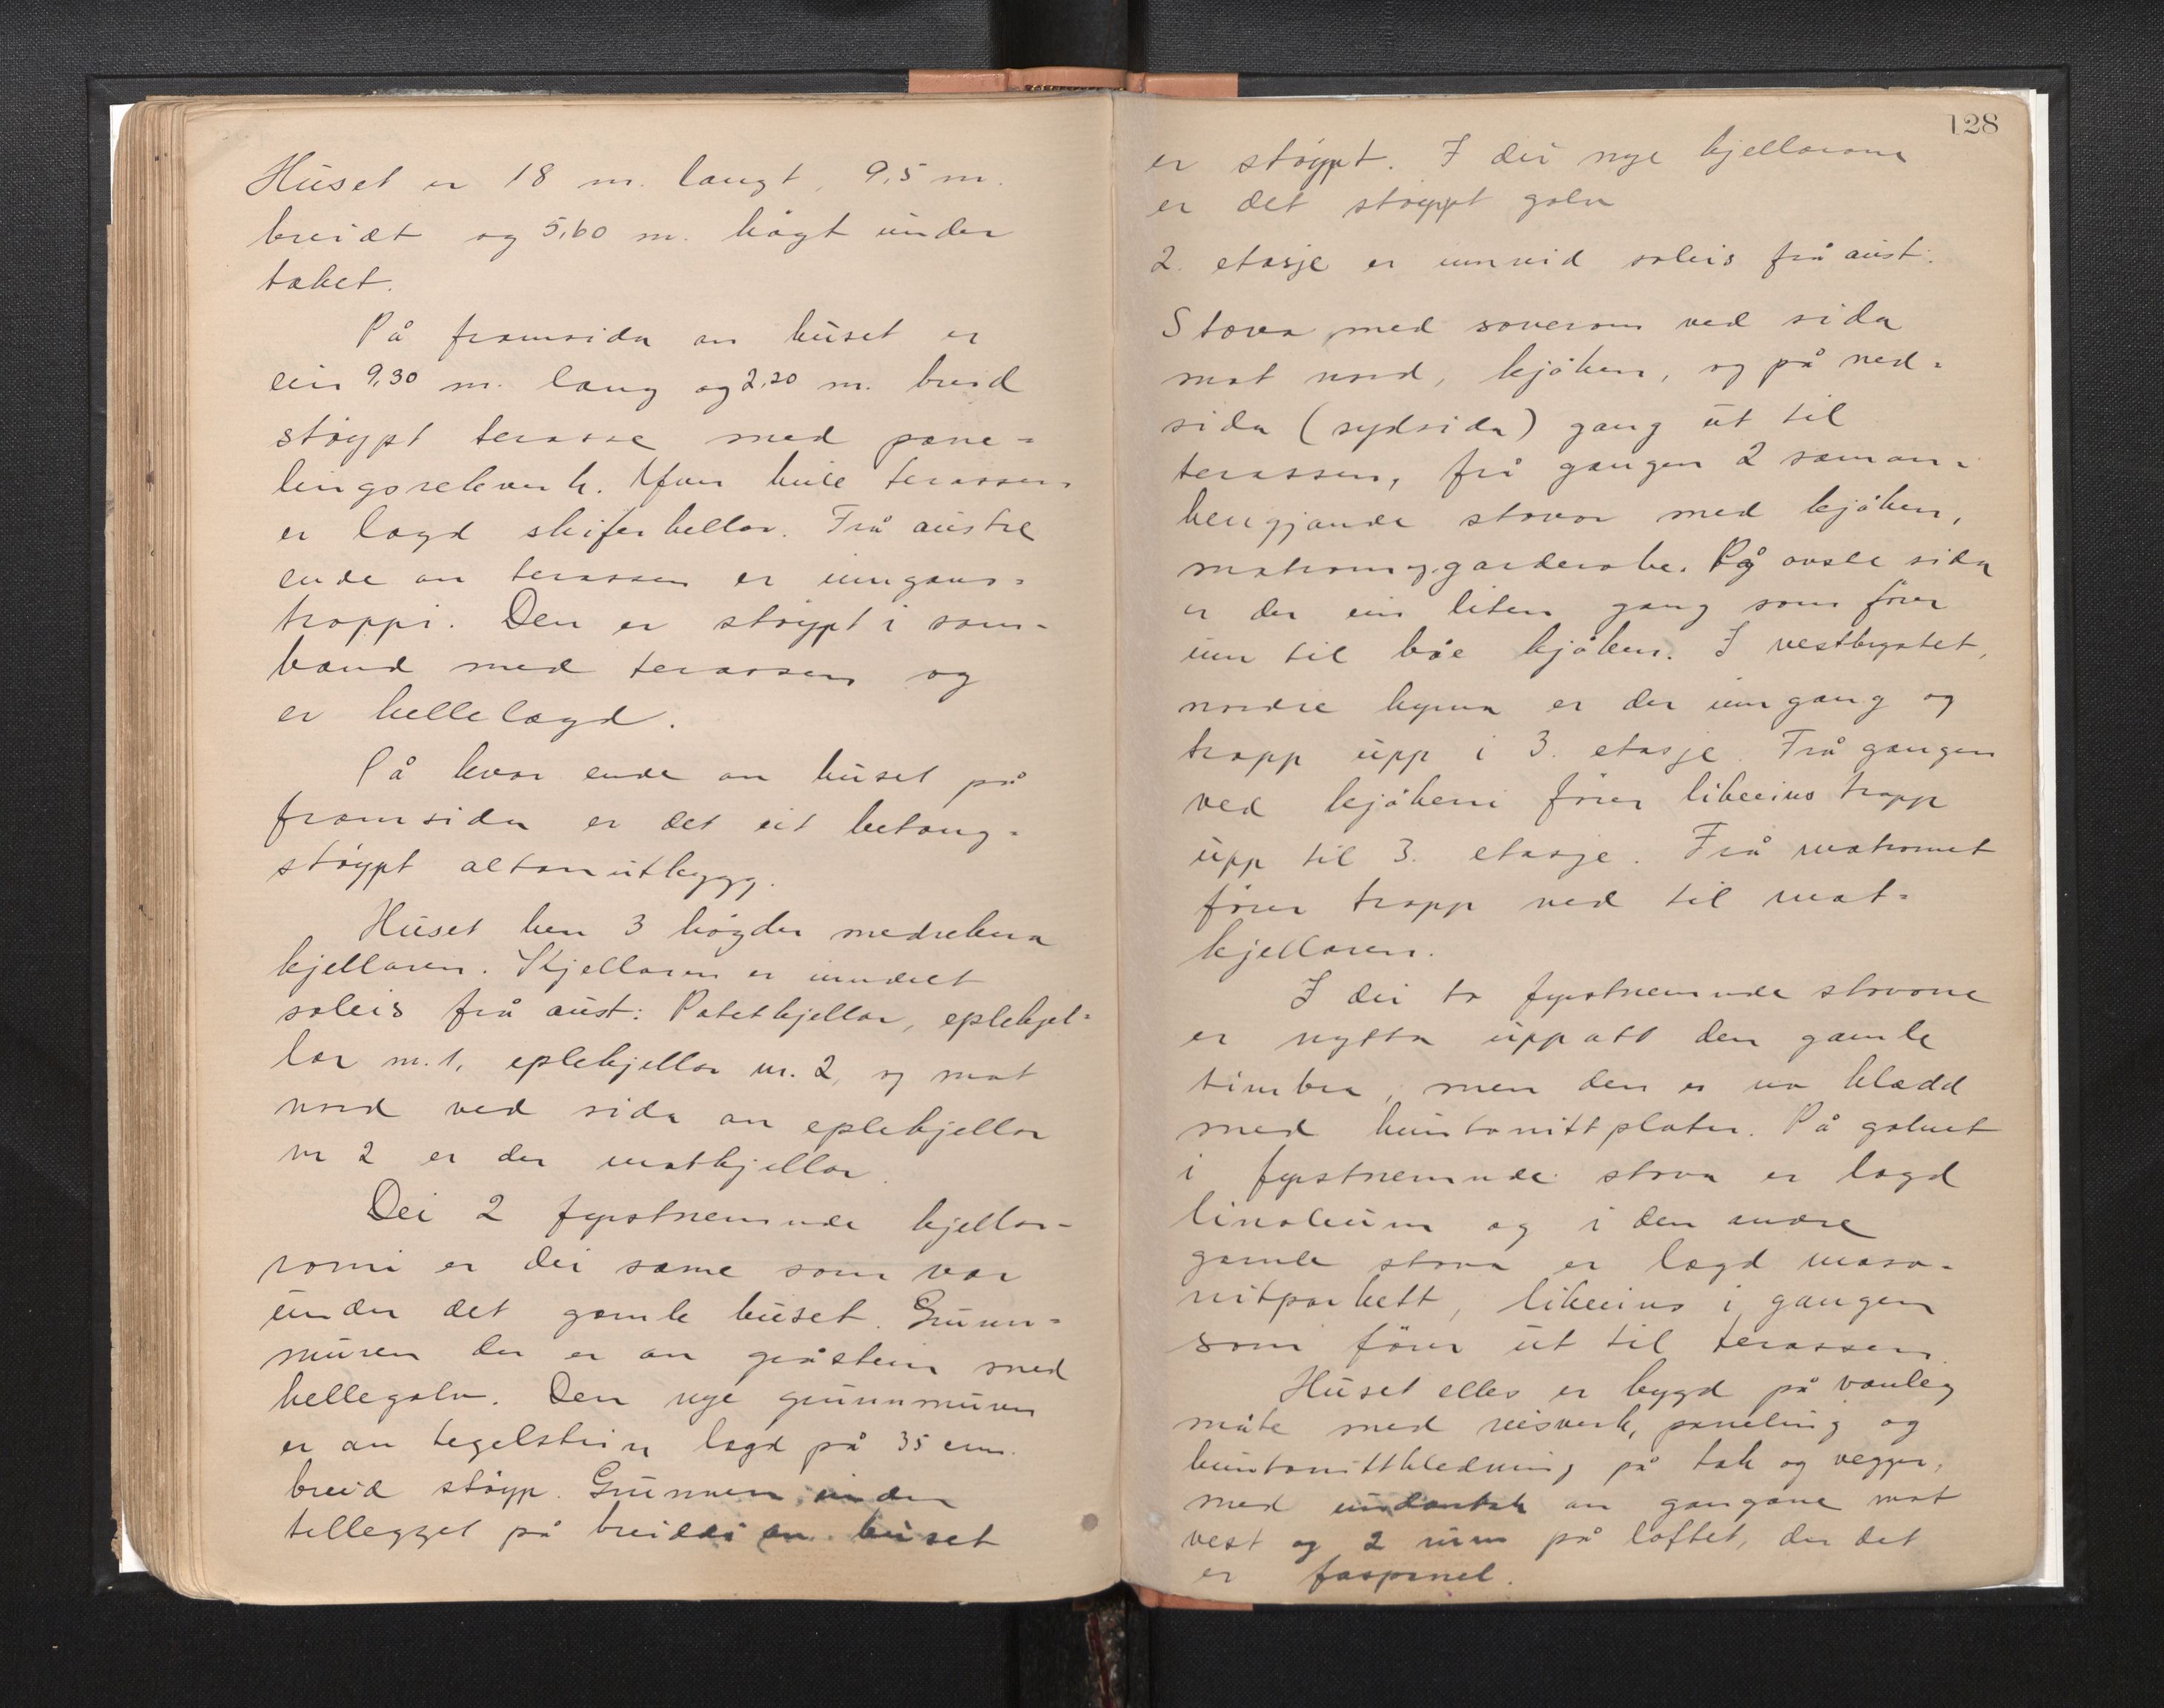 Huset er 18 m. langt, 9,5 m.
breidt og 5,60 m. högt under
taket.
På framsida av huset er
ein 9,30 m. lang og 2,20 m. breid
støypt terasse med pane-
lingsrekverk. Yver heile terassen
er lagd skiferhellar. Frå austre
ende av terassen er inngans-
troppi. Den er støypt i sam-
band med terassen og
er hellelagd.
På kvar ende av huset på
framsida er det eit betong-
støypt altanutbygg.
Huset hev 3 högder medrekna
kjellaren. Kjellaren er inndelt
soleis frå aust: Potetkjellar, eplekjel-
lar nr. 1, eplekjellar nr. 2, og mot
nord ved sida av eplekjellar
nr 2 er der matkjellar.
Dei 2 fyrstnemnde kjellar-
romi er dei same som var
under det gamle huset. Grunn-
muren der er av gråstein med
hellegolv. Den nye grunnmuren
er av tegelstein lagd på 35 cm.
breid støyp. Grunnen under
tillegget på breiddi av huset
128
er støypt. I dei nye kjellarane
er det støypt golv
2. etasje er innreid soleis frå aust:
Stova med soverom ved sida
mot nord, kjöken, og på ned-
sida (sydsida) gang ut til
terassen, frå gangen 2 saman-
hengjande stovor med kjöken,
matrom og garderobe. På øvste sida
er der ein liten gang som förer
inn til båe kjöken. I vestbygtet,
nordre hyrna er der inngang og
trapp upp i 3. etasje. Frå gangen
ved kjökeni förer likeeins trapp
upp til 3. etasje. Frå matromet
förer trapp ned til mat-
kjellaren.
I dei to fyrstnemnde stovone
er nytta uppatt den gamle
timbra, men den er no klædd
med huntonittplater. På golvet
i fyrstnemnde stova er lagd
linoleum og i den andre
gamle stova er lagd maso-
nitparkett, likeeins i gangen
som förer ut til terassen.
Huset elles er bygd på vanleg
måte med reisverk, paneling og
huntonittkledning på tak og vegger,
med undantak av gangane mot
vest og 2 rum på loftet, der det
er faspanel.